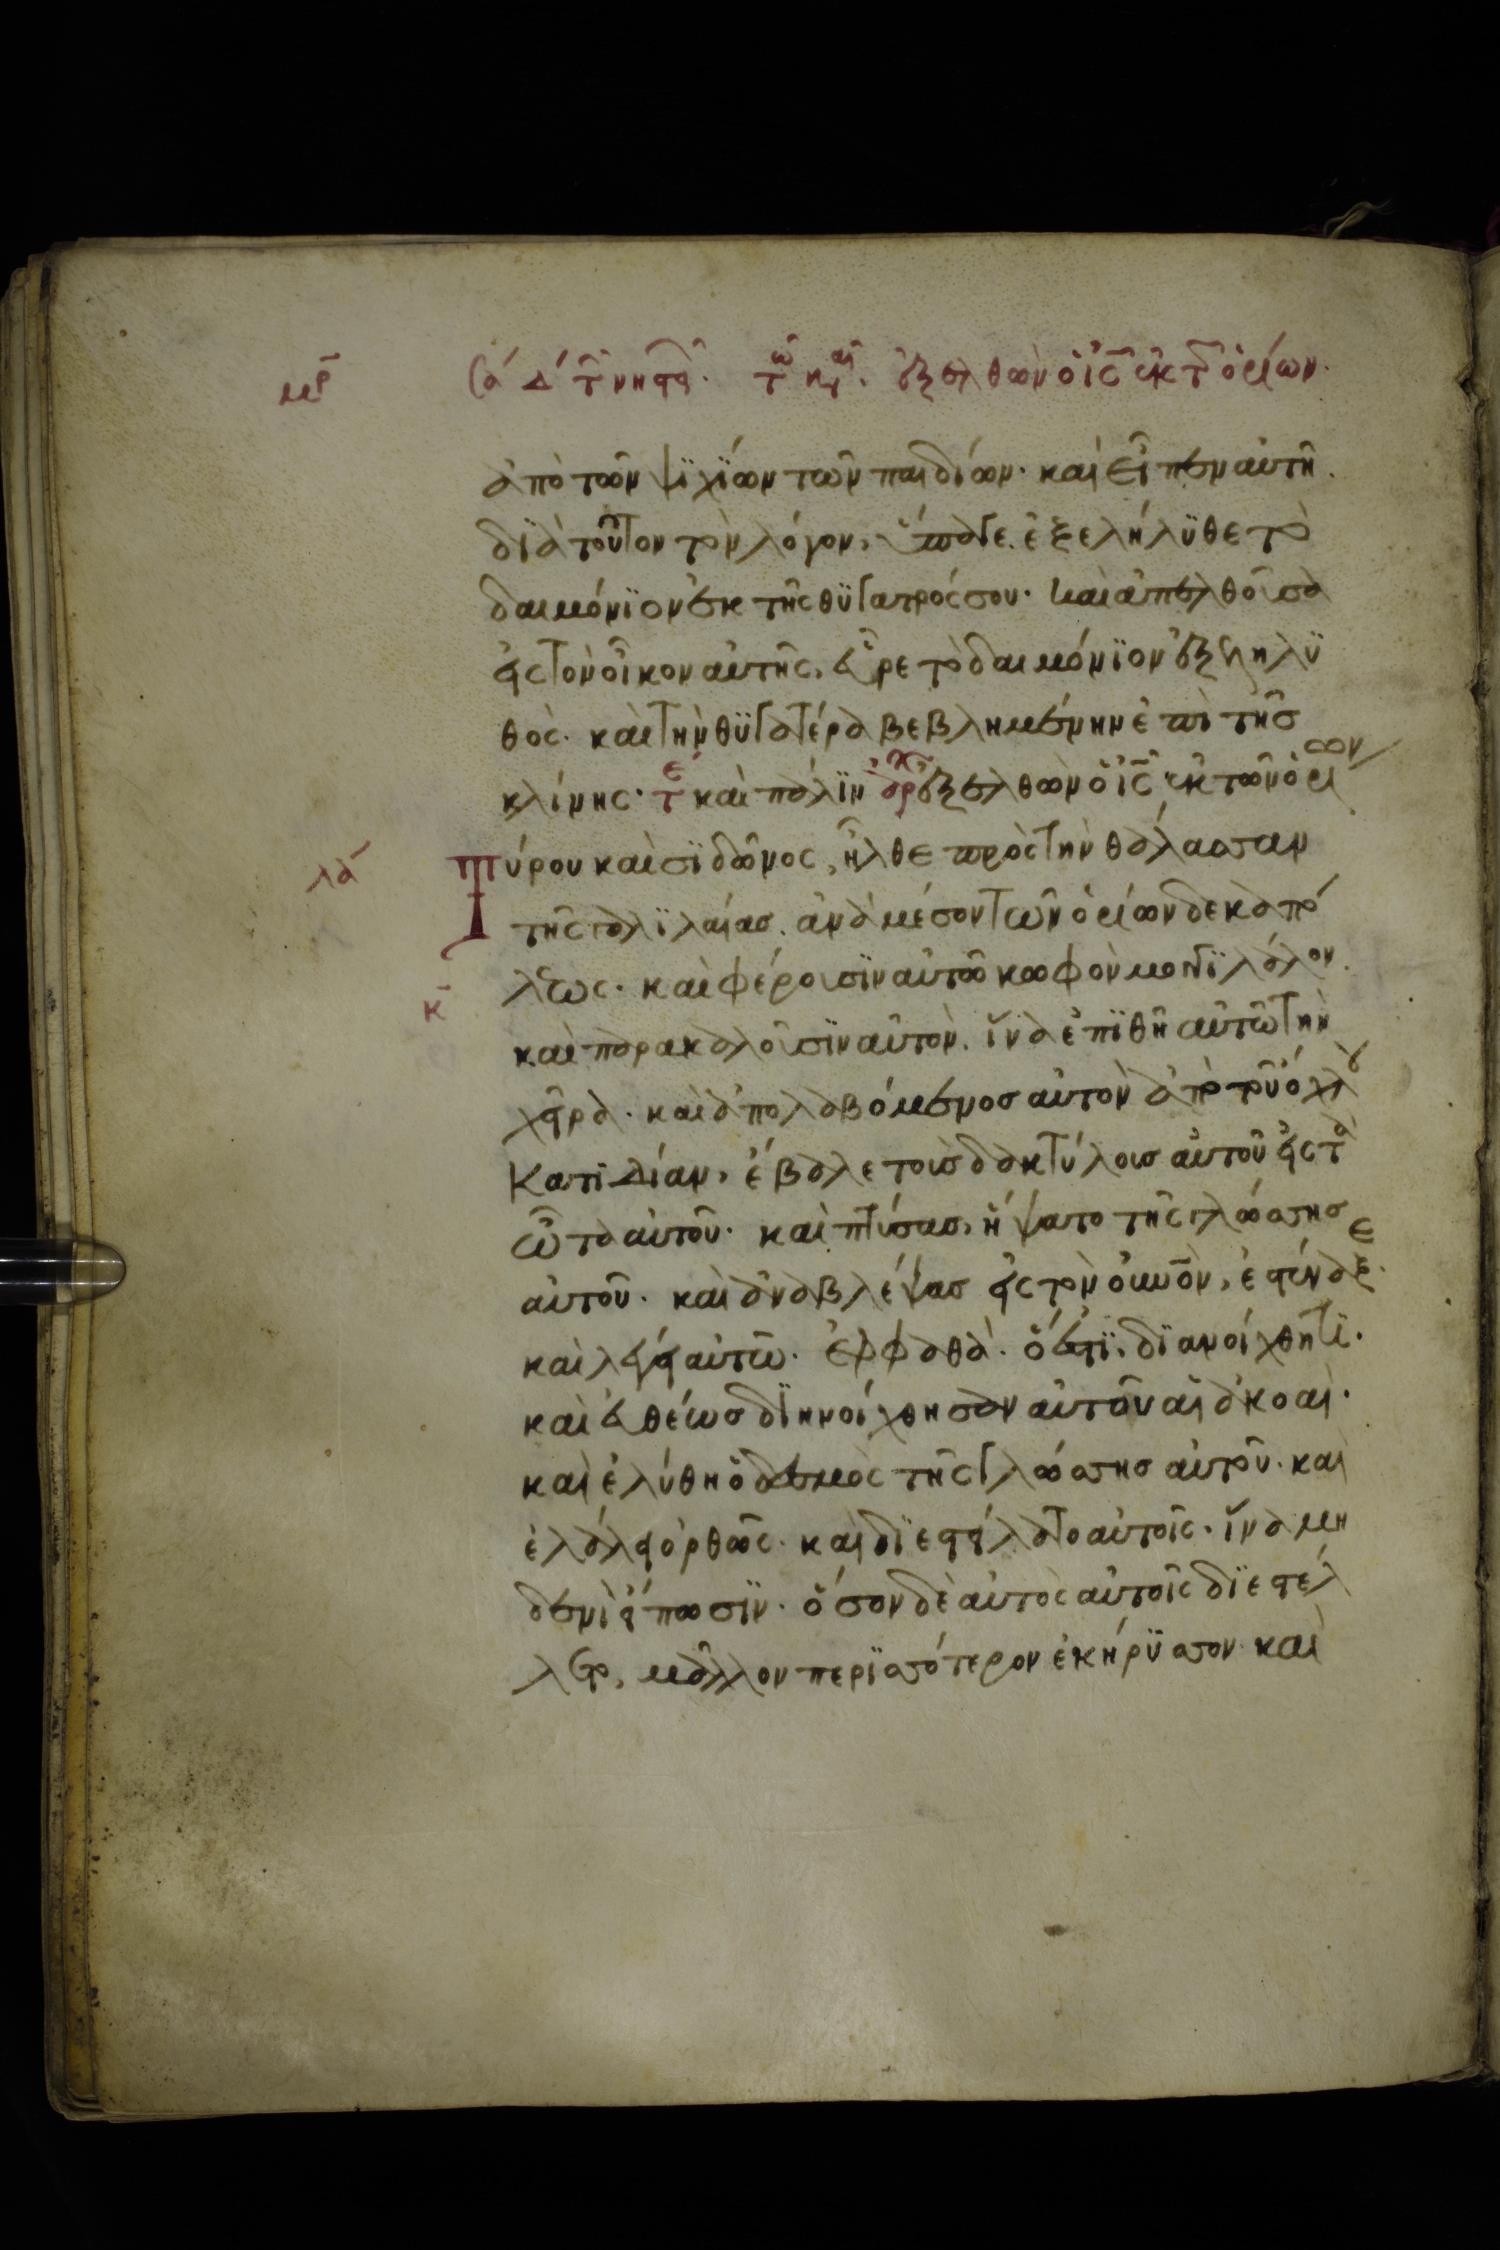 ἀπὸ τῶν ψϊχΐων τῶν παιδίων· καὶ εἶπεν αὐτῆ.
δϊὰ τοῦτον τὸν λόγον, ὕπαγε. ἐξελήλϋθε τὸ
δαιμόνϊον ἐκ τῆς θϋγατρός σου· καὶ ἀπελθοῦσα
εἰς τὸν οἶκον αὐτῆς, εὗρε τὸ δαιμόνϊον ἐξεληλϋ
θὸς· καὶ τὴν θϋγατέρα βεβλημένην ἐπὶ τῆς
κλίνης· τε καὶ πάλϊν ἀρχ ἐξελθὼν ὁ ις ἐκ τῶν ὁρίων
Τύρου καὶ σϊδῶνος, ἦλθε πρὸς τὴν θάλασσαν
λα
τῆς γαλϊλαίας. ἀνὰ μέσον τῶν ὁρίων δεκαπό
λεως· καὶ φέρουσϊν αὐτῶ κωφὸν μογϊλάλον.
κ
καὶ παρακαλοῦσϊν αὐτὸν. ἵνα ἐπϊθῆ αὐτῶ τὴν
χεῖρα· καὶ ἀπολαβόμενος αὐτὸν ἀπὸ τοῦ ὄχλου
κατϊδίαν, ἔβαλε τοὺς δακτύλους αὐτοῦ εἰς τὰ
ὦτα αὐτοῦ· καὶ πτύσας, ἥψατο τῆς γλώσσης
αὐτοῦ· καὶ ἀναβλέψας εἰς τὸν οὐνον, ἐστέναξε·
καὶ λέγει αὐτῶ· ἐφφαθὰ· ὅ ἐστϊ, δϊανοίχθητϊ·
καὶ εὐθέως δϊηνοίχθησαν αὐτοῦ αἱ ἀκοαὶ·
καὶ ἐλύθη ὁ δεσμὸς τῆς γλώσσης αὐτοῦ· καὶ
ἐλάλει ὀρθῶς· καὶ δϊεστείλατο αὐτοῖς· ἵνα μη
δενὶ εἴπωσϊν· ὅσον δὲ αὐτὸς αὐτοῖς δϊεστέλ
λετο, μᾶλλον περϊσσότερον ἐκήρϋσσον· καὶ